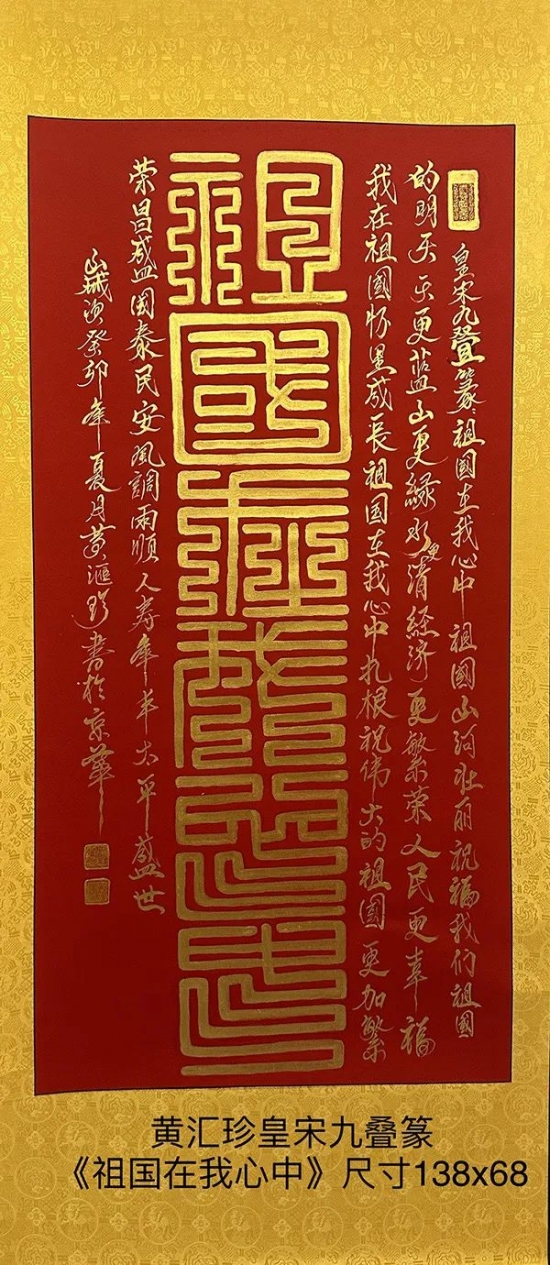 皇宋九叠篆祖國在我心中祖國山河壮丽祝福我们祖國
的明天天更蓝山更緑水更清經济更繁荣人民更幸福
我在祖國怀里成長祖国在我心中扎根祝伟大的祖国更加繁
祖國在我心中
荣昌盛国泰民安風調雨順人寿年丰太平盛世
歲次癸卯年夏月黄滙珍書於京華
黄汇珍皇宋九叠篆
《祖国在我心中》尺寸138x68